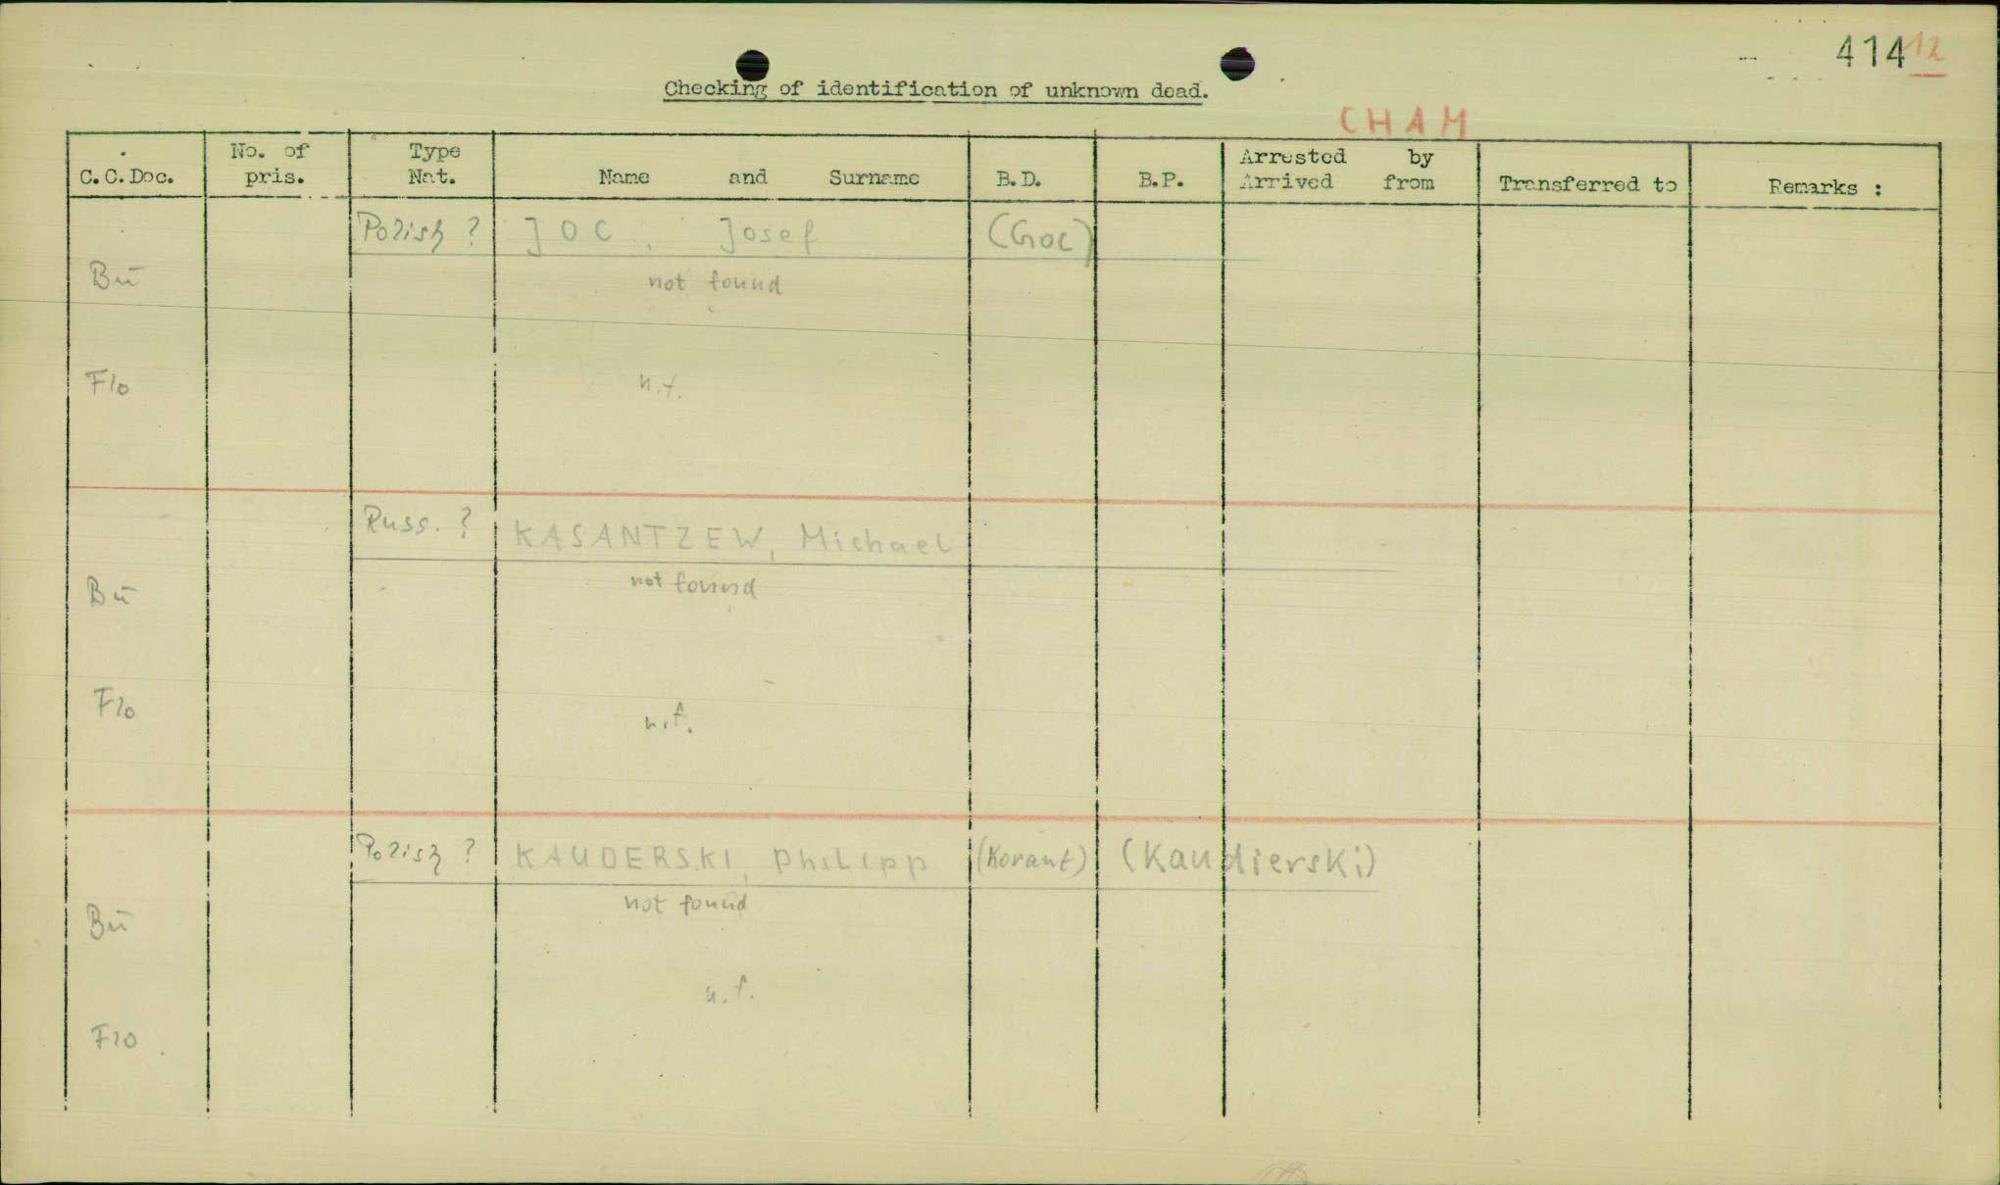 414 12
Checking of identification of unknown dead.
CHAM
C.C.Doc. No. of pris. Type Nat. Name and Surname B.D. B.P. Arrested by Arrived from Transferred to Remarks :
Polish ? JOC, Josef (Goc)
Bü not found
Flo n.f.
Russ. ? KASANTZEW, Michael
Bü not found
Flo n.f.
Polish ? KAUDERSKI, Philipp (Korant) (Kaudierski)
Bü not found
n.f.
Flo